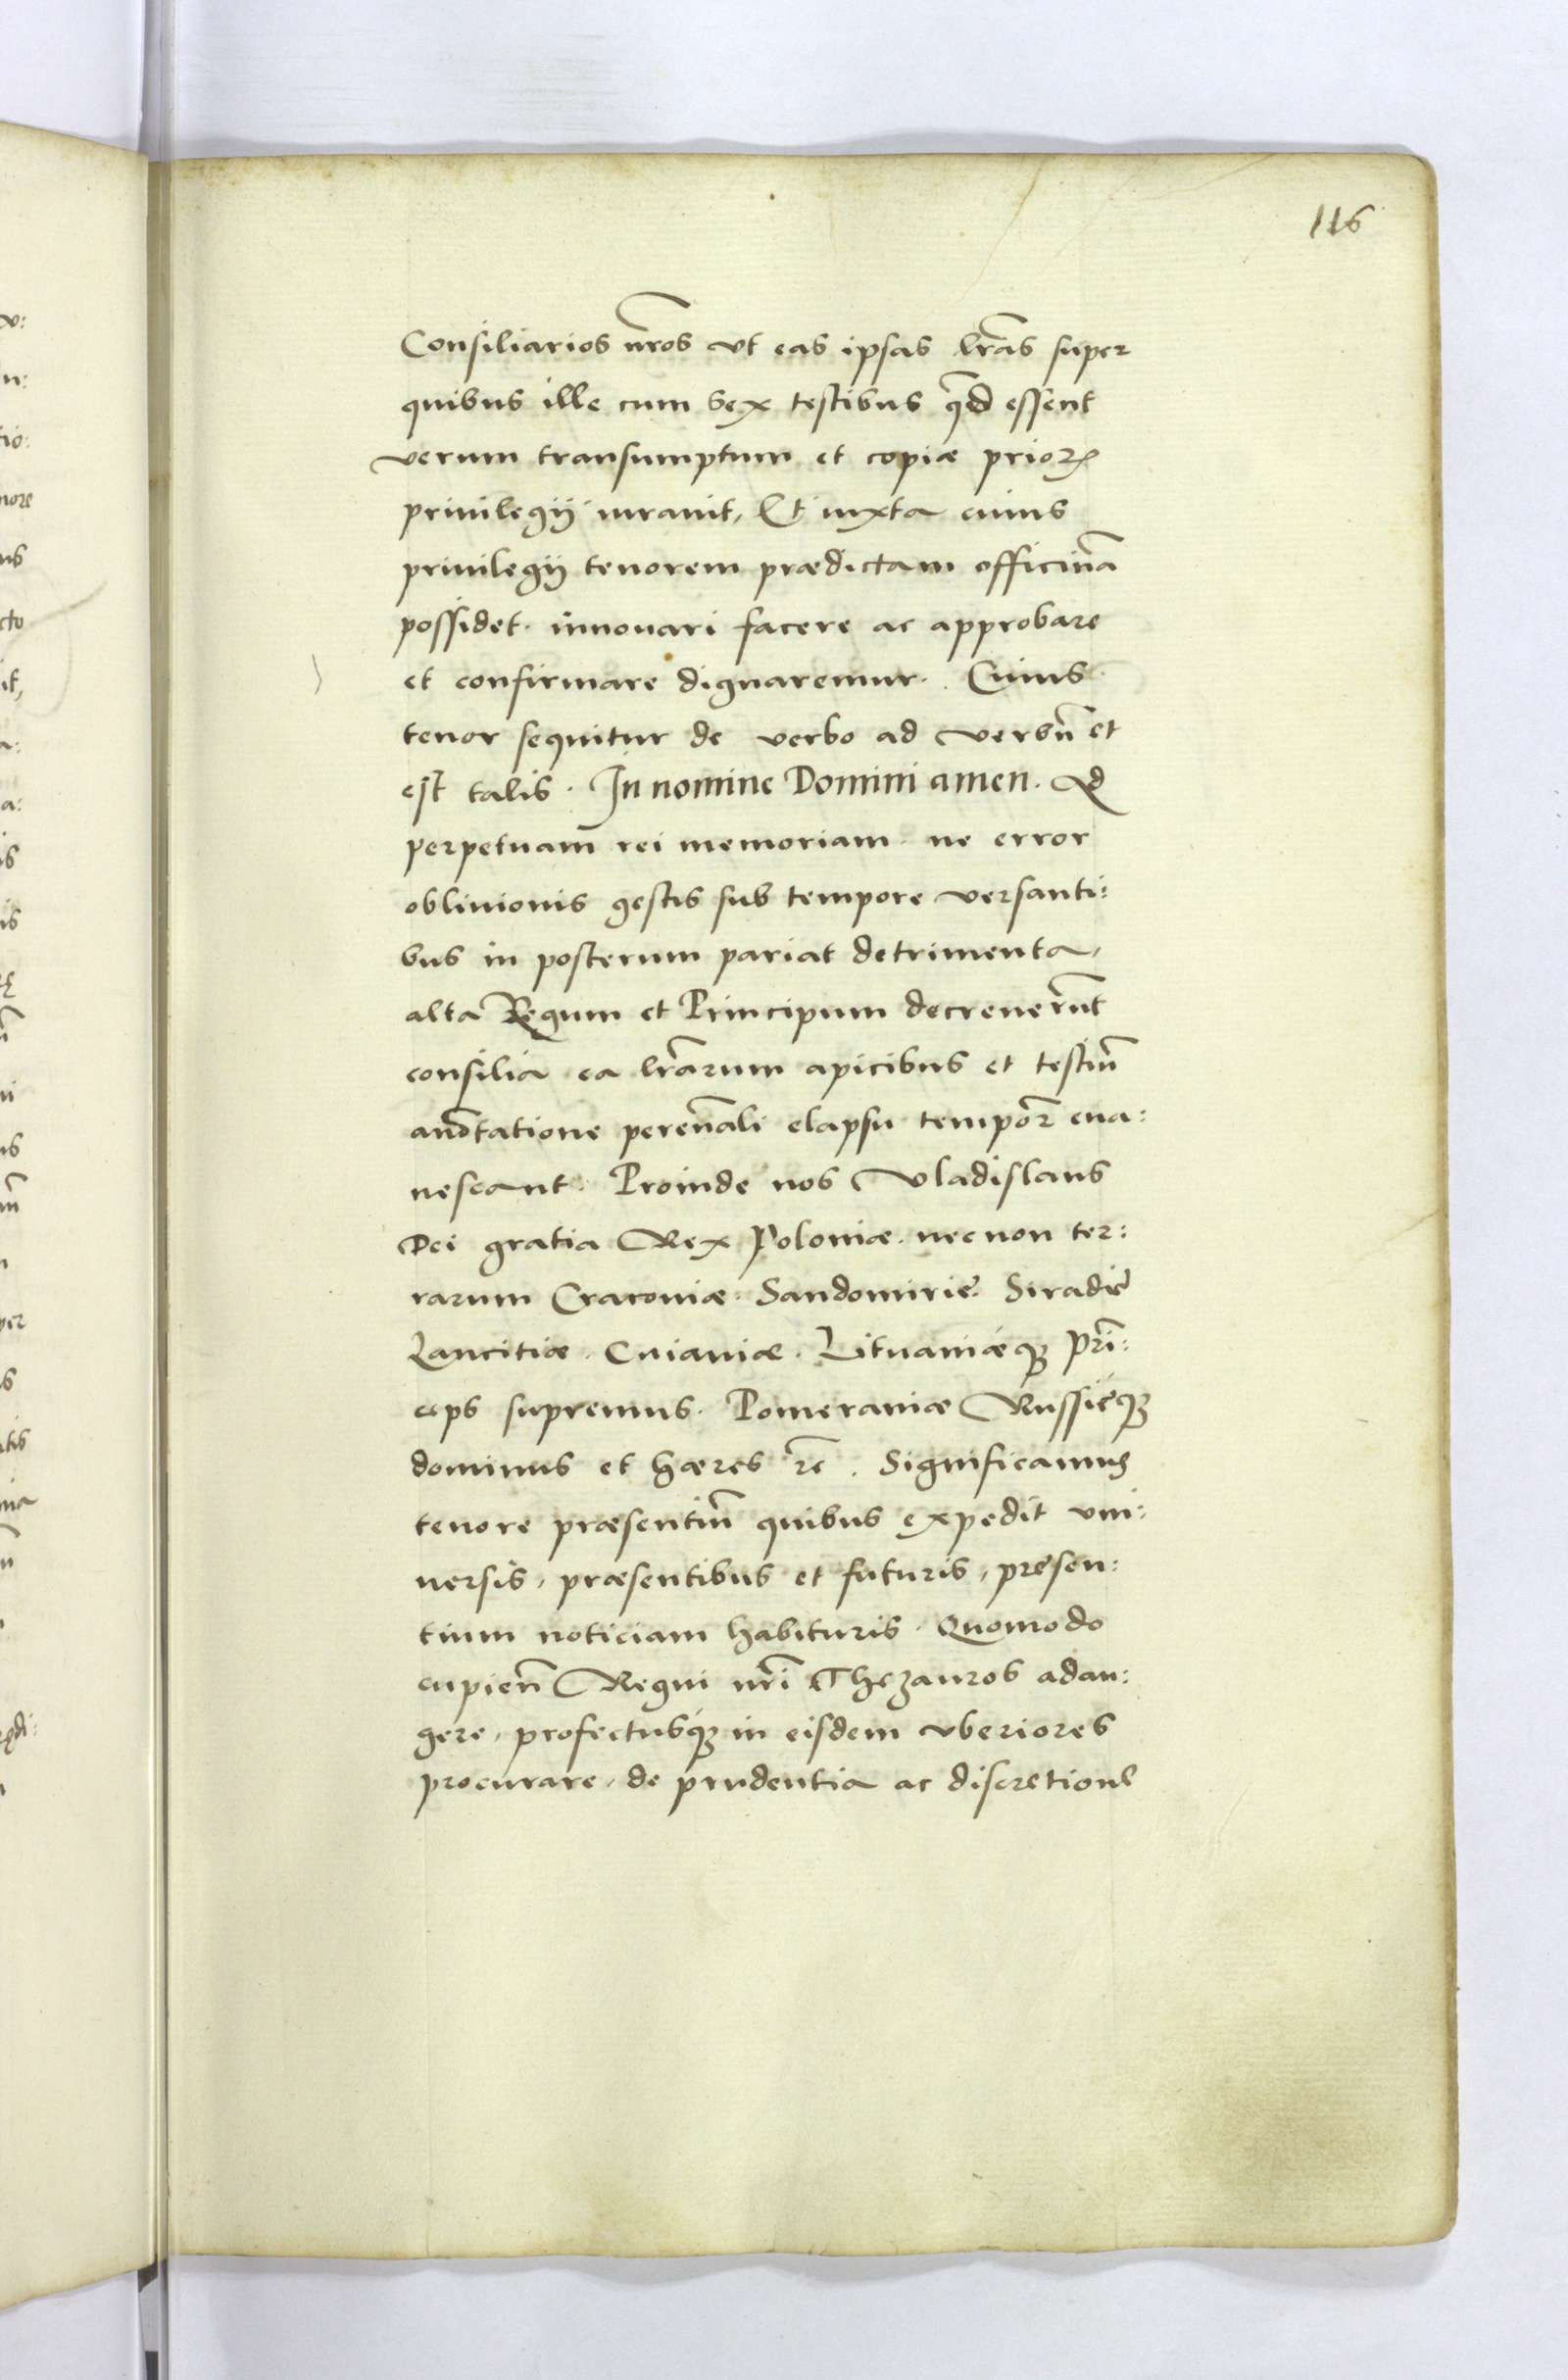 116
Consiliarios nr̃os vt eas ipsas lr̃as super
quibus ille cum sex testibus q̃d essent
verum transumptum et copiæ prioꝝ
priuilegij iurauit, Et iuxta cuius
priuilegij tenorem prædictam officinã
possidet. innouari facere ac approbare
et confirmare dignaremur. Cuius
tenor sequitur de verbo ad verbũ et
est talis. In nomine Domini amen. Ad
perpetuam rei memoriam. ne error
obliuionis gestis sub tempore versanti:
bus in posterum pariat detrimenta,
alta Regum et Principum decreuerũt
consilia ea lr̃arum apicibus et testiũ
anõtatione perẽnali elapsu tempoꝝ eua:
nescant. Proinde nos Vladislaus
Dei gratia Rex Poloniæ. necnon ter:
rarum Cracouiæ. Sandomirie. Siradie
Lancitiæ. Cuiauiæ. Lituaniæqꝫ Prĩ:
ceps supremus. Pomeraniæ Russieqꝫ
dominus et hæres rc̃. Significamus
tenore præsentiũ quibus expedit vni:
uersis, præsentibus et futuris, presen:
tium noticiam habituris. Quomodo
cupieñ Regni nr̃i Thezauros adau:
gere, profectusqꝫ in eisdem vberiores
procurare, de prudentia ac discretione